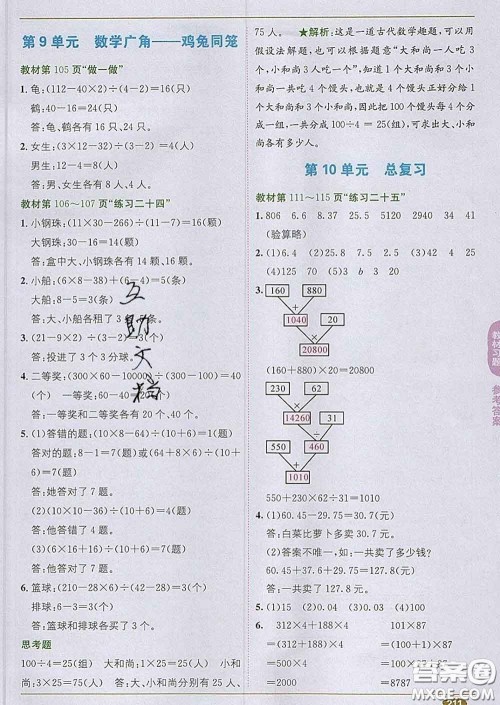 第9单元 数学广角——鸡兔同笼
教材第105页“做一做”
1. 龟:(112-40×2)÷(4-2)=16(只)
鹤:40-16=24(只)
答:龟、鹤各有16只、24只。
2. 女生:
男生:12-4=8(人)
答:男、女生各有8人、4人。
教材第106~107页“练习二十四”
1. 小钢珠:(11×30-266)÷(11-7)=16(颗)
大钢珠:30-16=14(颗)
答:盒中大、小钢珠各有14颗、16颗。
2. 小船:(6×8-38)÷(6-4)=5(条)
大船:8-5=3(条)
答:大、小船各租了3条、5条。
3. (21-9×2)÷(3-2)=3(个)
答:投进了3个3分球。
4. 二等奖:(300×60-10000)÷(300-100)=40(名)
一等奖:60-40=20(名)
答:一等奖和二等奖各有20个、40个。
5. (1)答错的题:(10×8-64)÷(10+6)=1(题)
答对的题:8-1=7(题)或(64+6×8)÷(10+6)=7(题)
答:她答对了7题。
(2)(10×10-36)÷(10+6)=4(题)
答:他答错了4题。
(3)(10×16-16)÷(10+6)=9(题)
答:他答错了9题。
6. 篮球:(210-28×6)÷(56-28×1.5)=3(个)
排球:6-3=3(个)
答:篮球和排球各买了3个。
思考题
100÷4=25(组) 大和尚:1×25=25(人) 小和
尚:3×25=75(人) 答:大、小和尚分别有25人、
75人。 ★解析:这是一道古代数学趣题,可以用
假设法解题,也可以根据题意“大和尚一人吃3
个,小和尚3人吃一个”知道1个大和尚和3个小
和尚一共吃4个馒头,也就是4个馒头正好分给1
个大和尚和3个小和尚,因此把100个馒头每4个
分成一组,一共分成100÷4=25(组),可求出大、小和
尚各有多少人。
第10单元 总复习
教材第111~115页“练习二十五”
1. 806 6.6 8.37 25.5 5120 2940 34 41
(验算略)
2. (1)13 7 2 (2)908 7.2 2.5 (3)24 32
(4)125 70 (5)3 b 3 20
3. 160 880
1040 20
20800
(160+880)×20=20800
230 62
550 14260 31
460
1010
550+230×62÷31=1010
4. (1)60.45-29.75=30.7(元)
答:白菜比萝卜多卖30.7元。
(2)答案不唯一,如:一共卖了多少钱?
答:一共卖了127.8元。
6. 312×4+188×4 101×87
=(312+188)×4 =(100+1)×87
=500×4 =100×87+1×87
=2000 =8787
互
助
文
档
教材习题
参考答案
211
答案圈
MXQE.COM